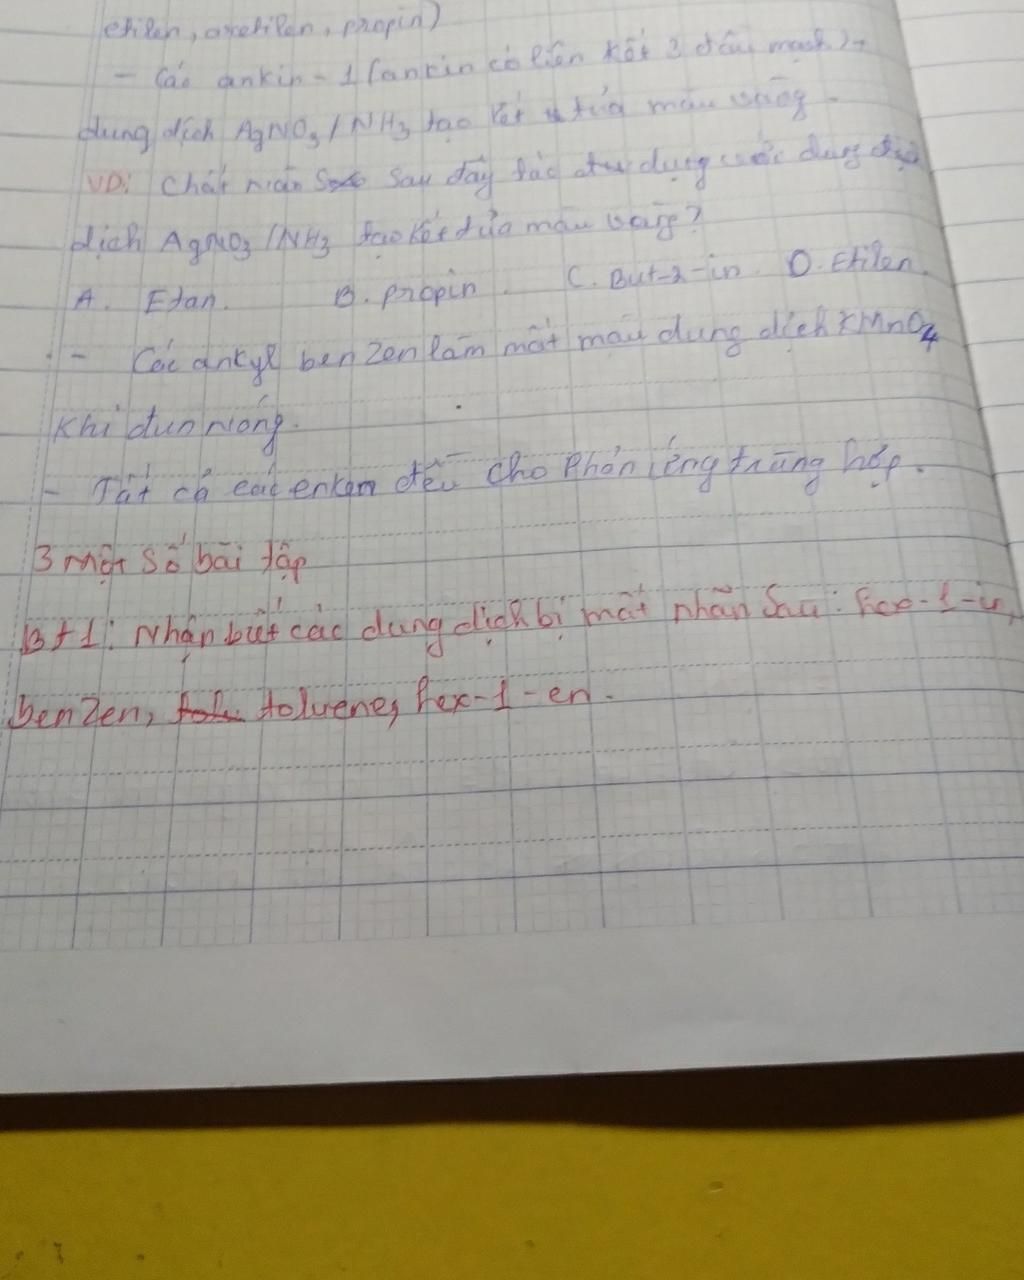 etilen, axetilen, propin)
- Các ankin - 1 (ankin có liên kết 3 đầu mạch) +
dung dịch AgNO3 / NH3 tạo kết tủa màu vàng.
VD: Chất nào sau đây tác dụng với dung dịch
dịch AgNO3 / NH3 tạo kết tủa màu vàng?
A. Etan. B. propin. C. But-2-in. D. Etilen.
- Các ankyl benzen làm mất màu dung dịch KMnO4
khi đun nóng.
- Tất cả các enken đều cho phản ứng trùng hợp.
3 Một số bài tập
Bt 1: Nhận biết các dung dịch bị mất nhãn sau: hex-1-in,
benzen, toluene, hex-1-en.